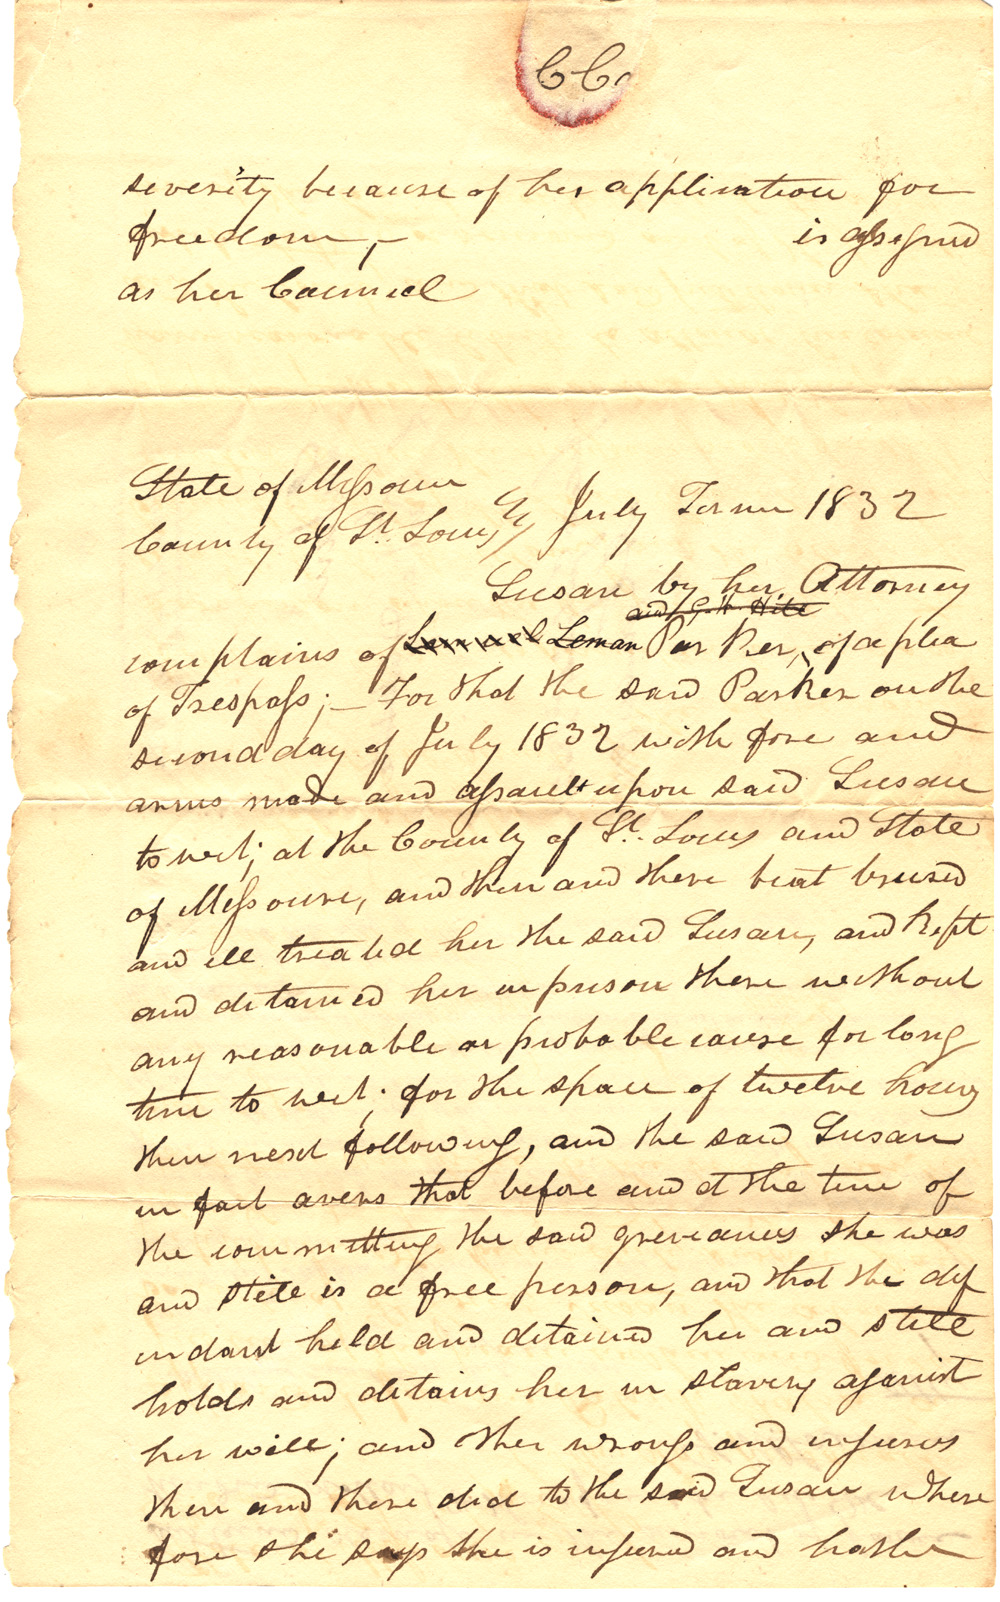 CC
severity because of her application for
freedom,- is assigned
as her Counsel
State of Missouri
County of St. Louis July Term 1832
Susan by her Attorney
and G. W. Hite
complains of Lemuel Leman Parker, of a plea
of Trespass; - For that the said Parker on the
second day of July 1832 with force and
arms made and assault upon said Susan
to wit; at the County of St. Louis and State
of Missouri, and then and there beat brused
and ill treated her the said Susan, and kept
and detained her in prison there without
any reasonable or probable cause for long
time to wit; for the space of twelve hours
then next following, and the said Susan
in fact avers that before and at the time of
the committing the said greviances she was
and still is a free person, and that the def
endant held and detained her and still
holds and detains her in slavery against
her will; and other wrongs and injuries
then and there did to the said Susan where
fore she says she is injured and hath